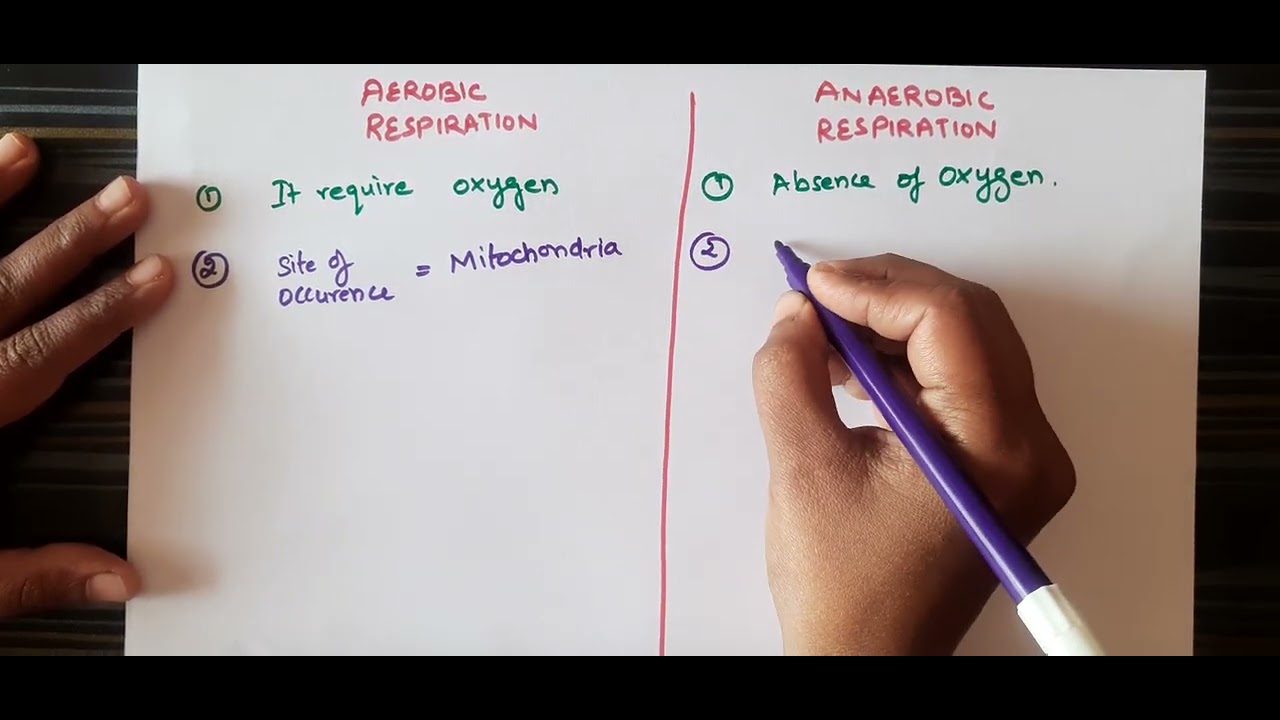 AEROBIC
RESPIRATION
① It require oxygen
② Site of
Occurence = Mitochondria
ANAEROBIC
RESPIRATION
① Absence of Oxygen.
②